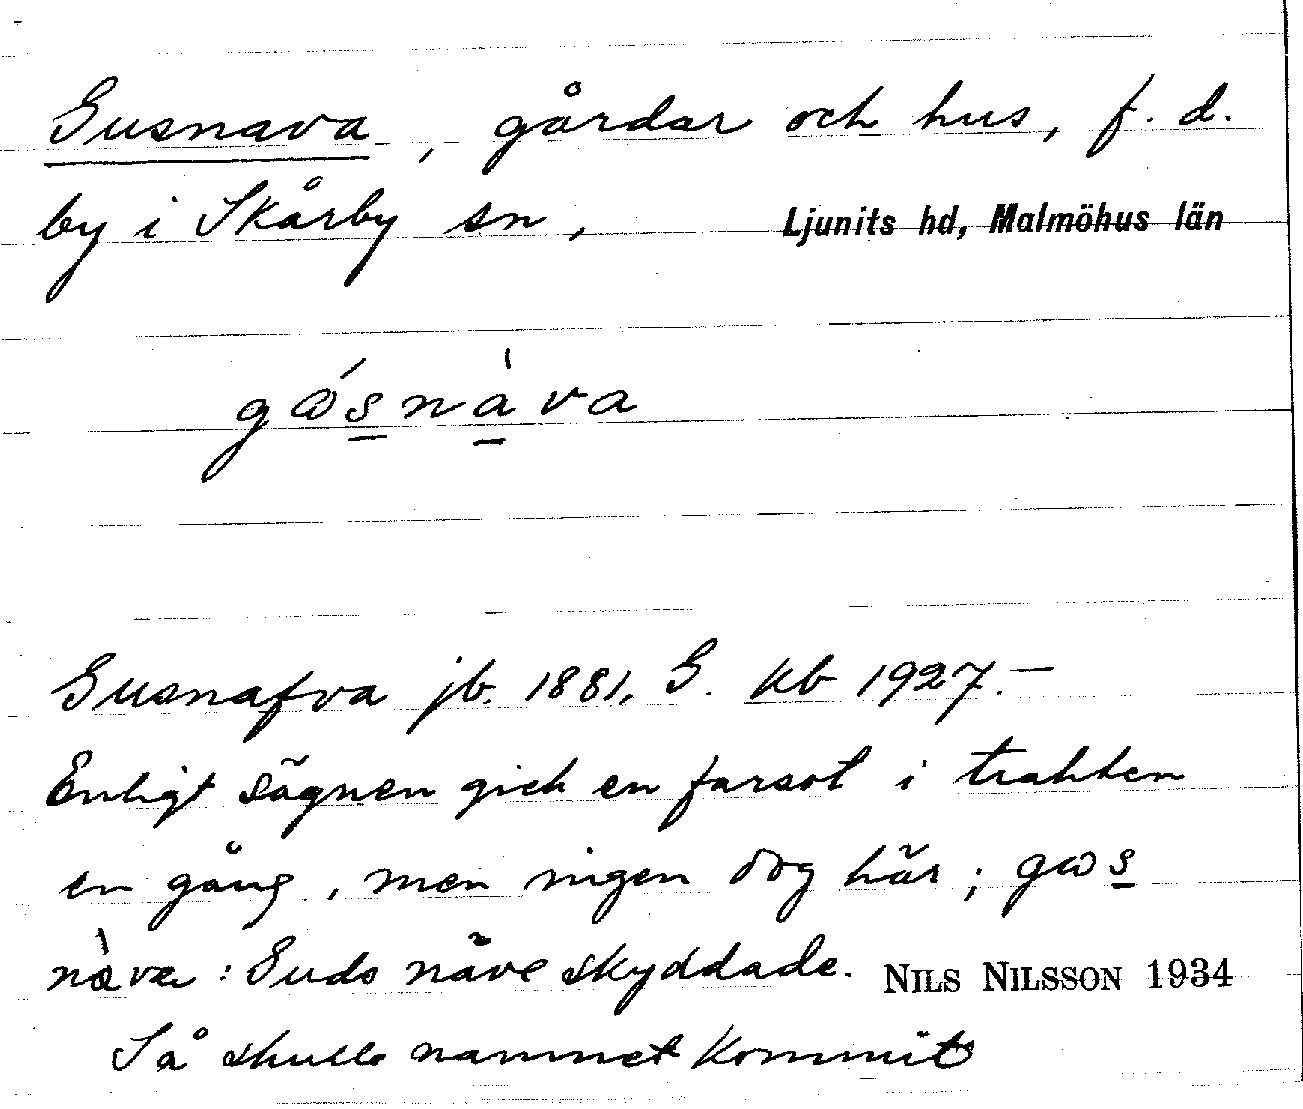 Gusnava, gårdar och hus, f. d.
by i Skårby sn, Ljunits hd, Malmöhus län
gɷ́snàva
Gusnafva jb. 1881, G. kb 1927.—
Enligt sägnen gick en farsot i trakten
en gång, men ingen dog här; gɷs
nàva: Guds näve skyddade. NILS NILSSON 1934
Så skulle namnet kommit